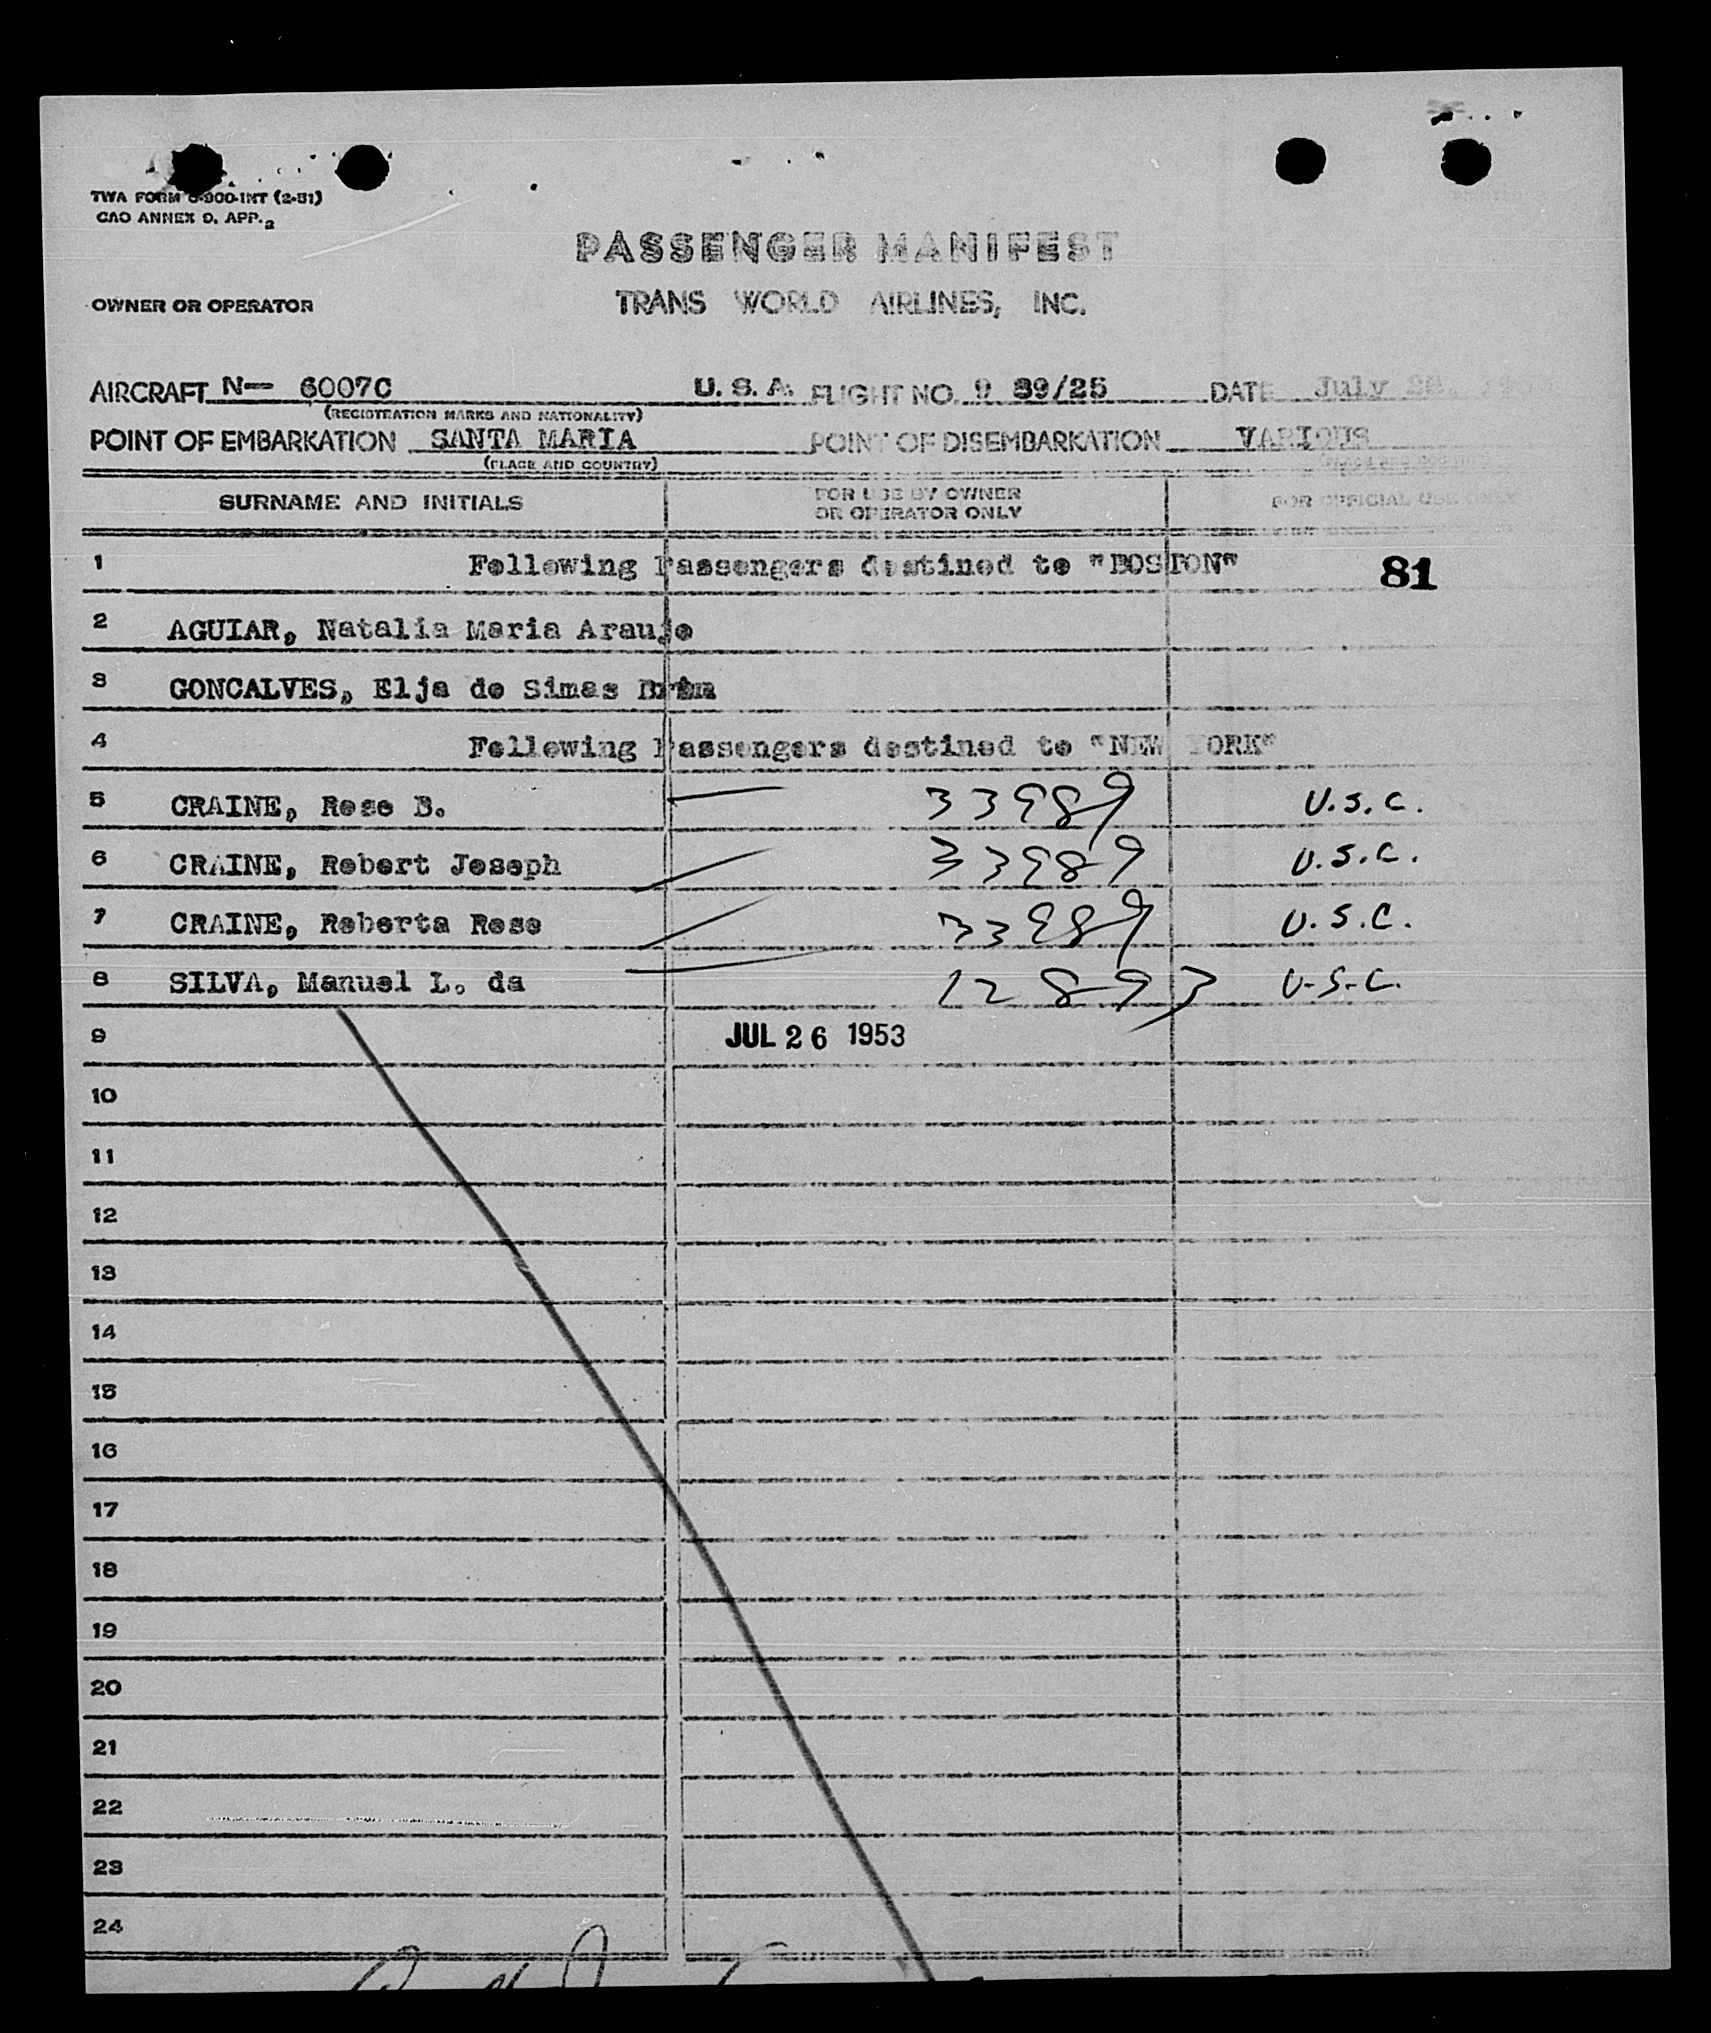 TWA FORM O-900-INT (2-51)
CAO ANNEX 9, APP. 2
PASSENGER MANIFEST
OWNER OR OPERATOR TRANS WORLD AIRLINES, INC.
AIRCRAFT N— 6007C U. S. A. FLIGHT NO. 9 89/25 DATE July
(REGISTRATION MARKS AND NATIONALITY)
POINT OF EMBARKATION SANTA MARIA POINT OF DISEMBARKATION VARIOUS
(PLACE AND COUNTRY)
SURNAME AND INITIALS FOR USE BY OWNER OR OPERATOR ONLY FOR OFFICIAL USE ONLY
1 Following Passengers destined to "BOSTON" 81
2 AGUIAR, Natalia Maria Araujo
3 GONCALVES, Elja de Simas
4 Following Passengers destined to "NEW YORK"
5 CRAINE, Rose B. 33989 U.S.C.
6 CRAINE, Robert Joseph 33989 U.S.C.
7 CRAINE, Roberta Rose 33989 U.S.C.
8 SILVA, Manuel L. da 12893 U.S.C.
9 JUL 26 1953
10
11
12
13
14
15
16
17
18
19
20
21
22
23
24